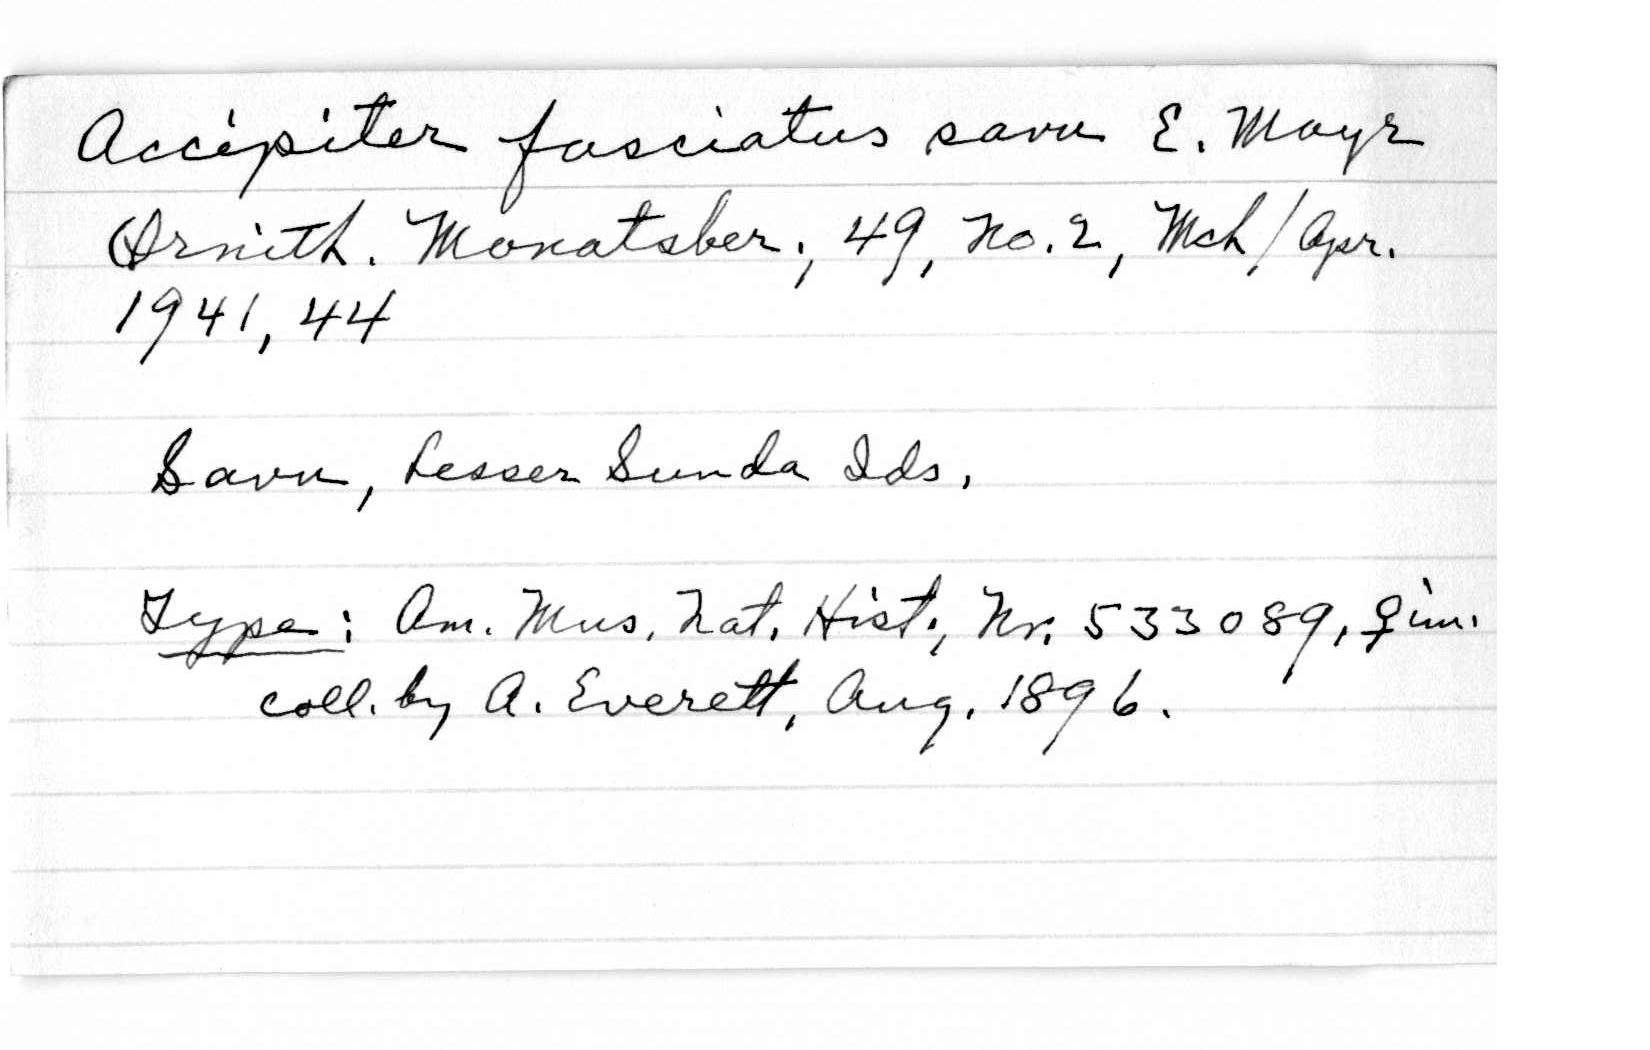 Accipiter fasciatus savu E. Mayr
Ornith. Monatsber., 49, no. 2, Mch/Apr.
1941, 44
Savu, Lesser Sunda Ids.
Type: Am. Mus. Nat. Hist., Nr. 533089, ♀ im.
coll. by A. Everett, Aug. 1896.